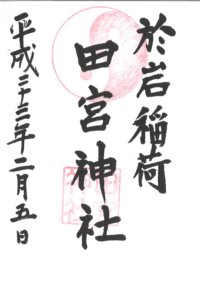 於岩稲荷
田宮神社
平成二十三年二月五日